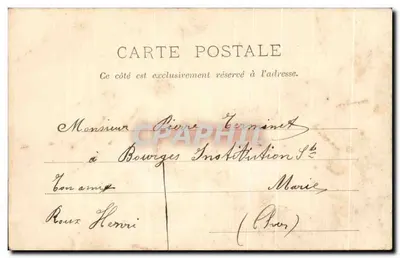 CARTE POSTALE
Ce côté est exclusivement réservé à l'adresse.
Monsieur Pierre Terminet
CPAPHIL
à Bourges Institution Ste
Marie
Ton ami
Roux Henri
(Cher)